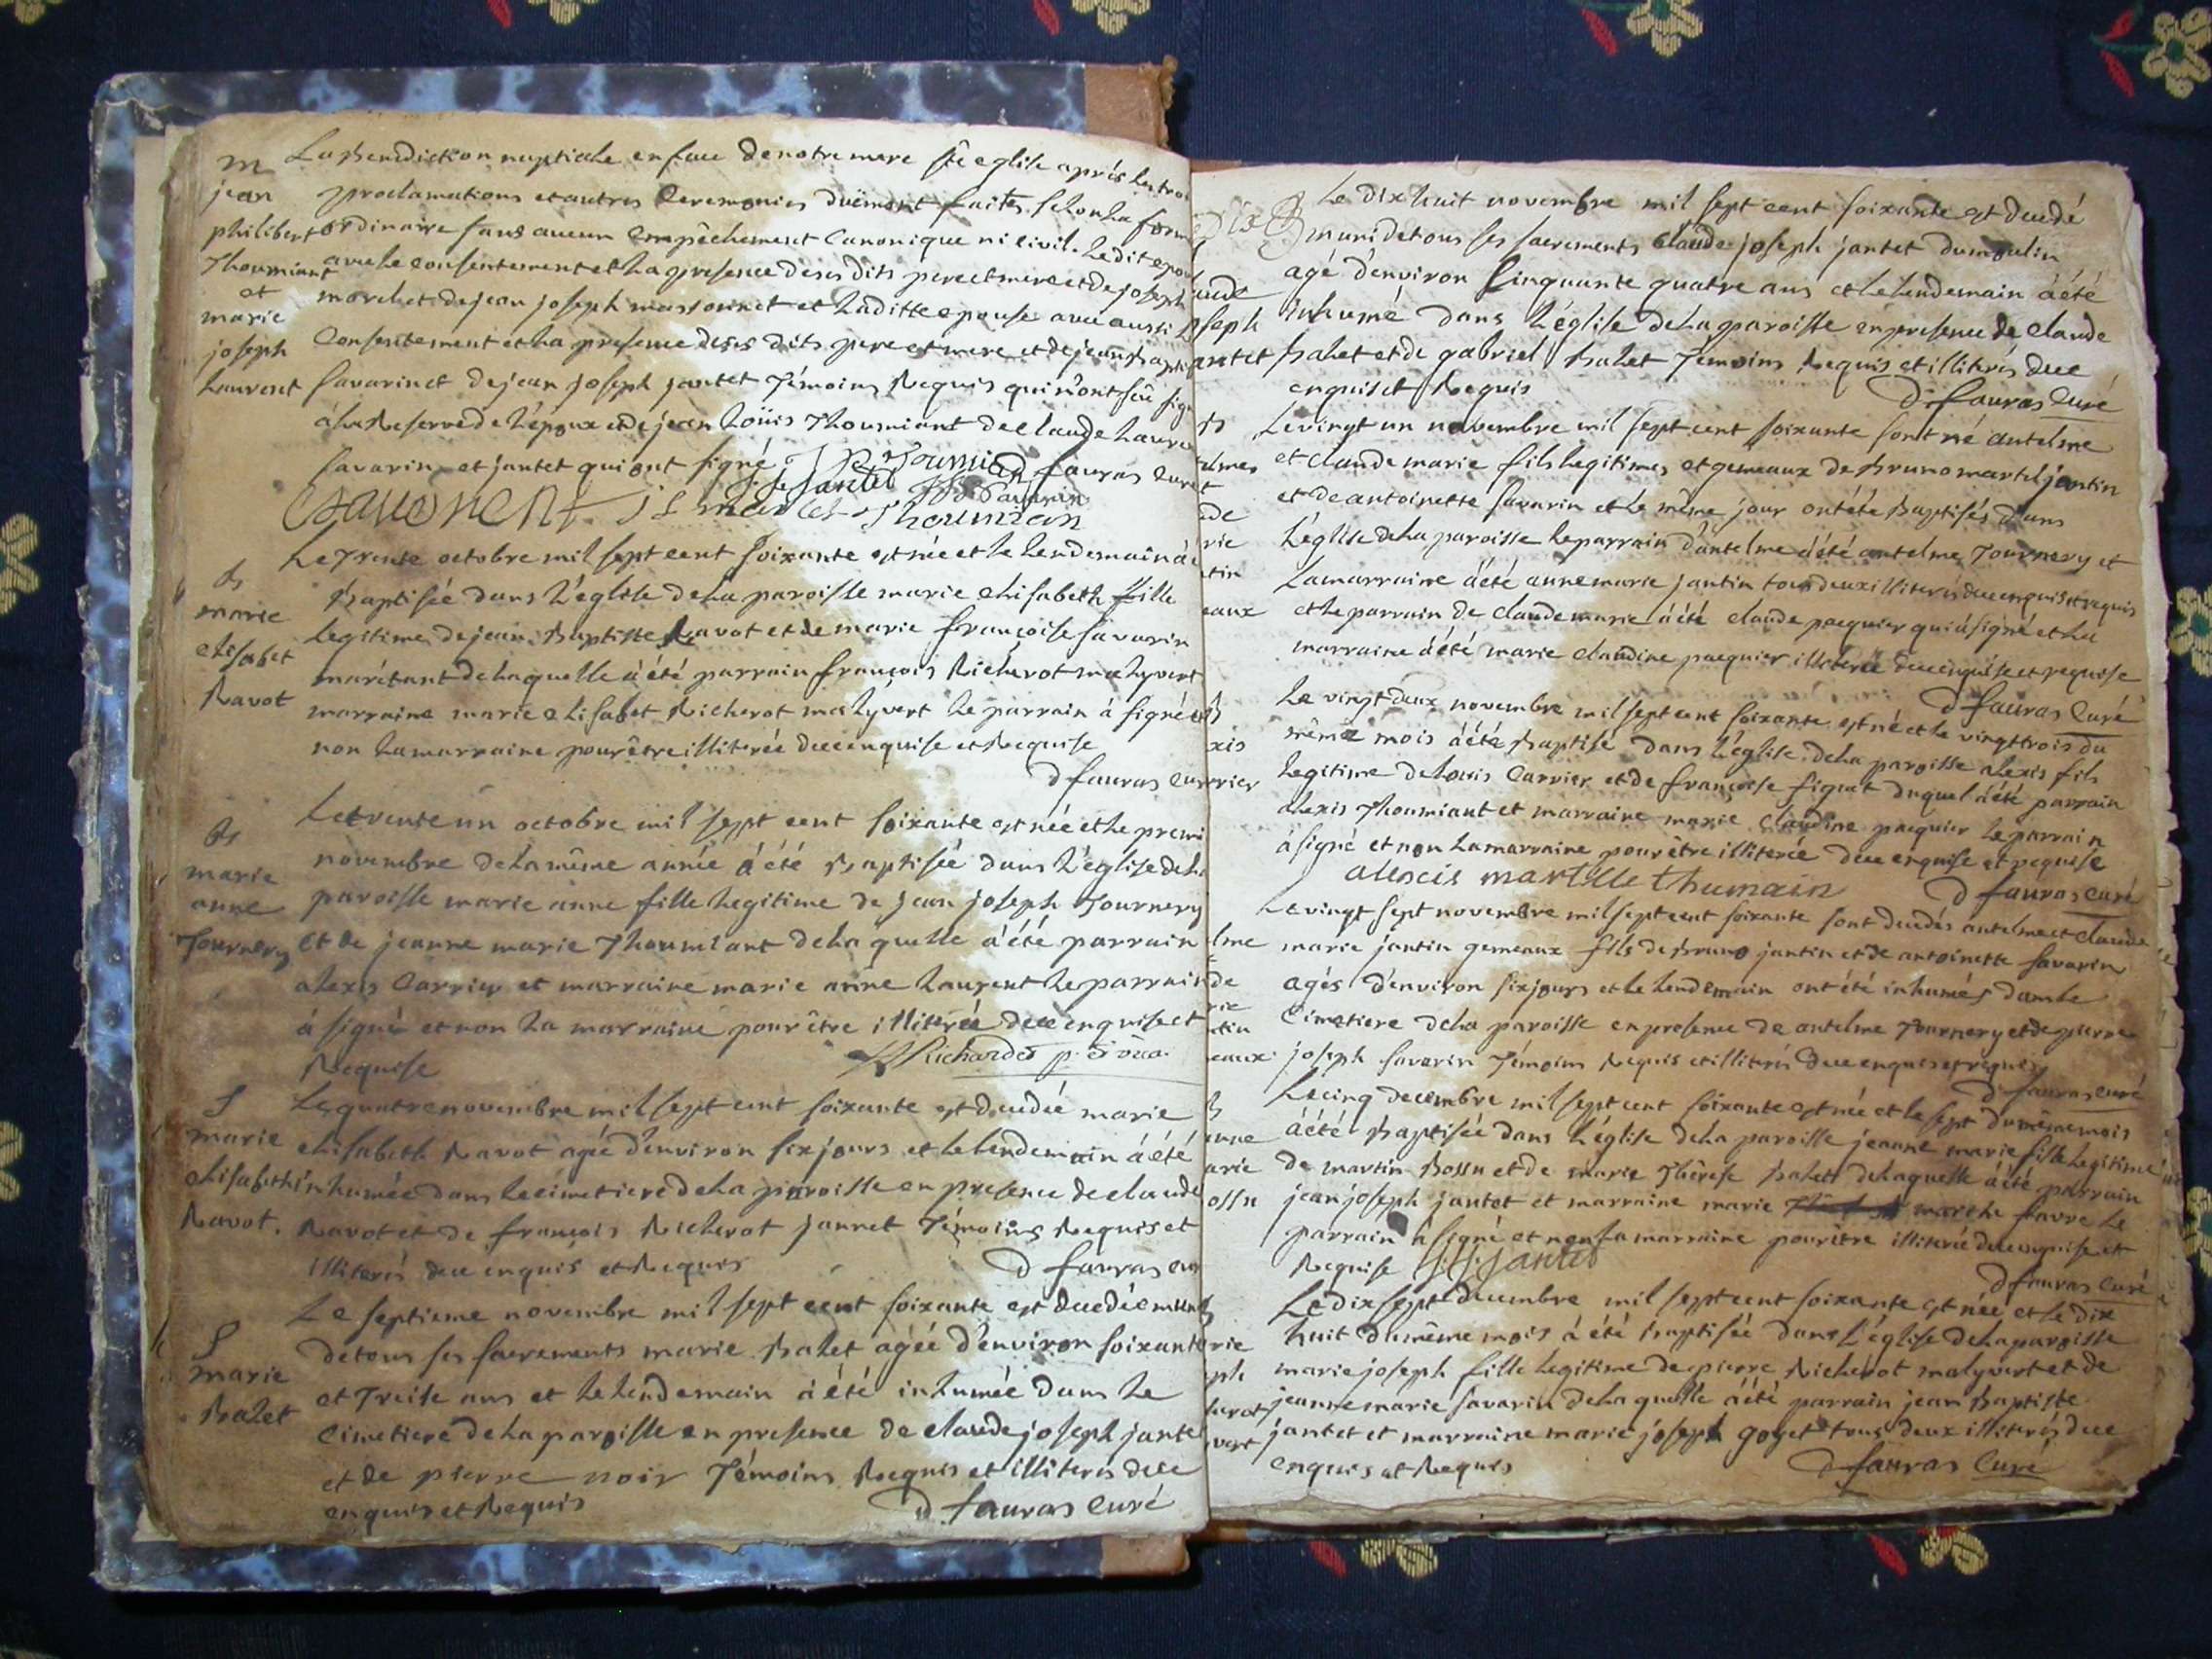 m
jean
philibert
Thoumiant
et
marie
joseph
laurent
La Benediction nuptiale en face de notre mere ste eglise aprés les troi
proclamations et autres Ceremonies duëment faites selon la form
ordinaire sans aucun Empêchement Canonique ni civil. Le dit epou
avec le consentement et la presence de ses dits pere et mere et de joseph
morel et de jean joseph massonnet et la ditte epouse avec aussi
Consentement et la presence de ses dits pere et mere et de jean Bapti
savarin et de jean joseph jantet Témoins Requis qui n'ont sçu sign
à la Reserve de l'époux et de jean Loüis Thoumiant de claude lauren
savarin et jantet qui ont signé
D fauras curé
jantet
Savarin
Thoumian
B
marie
elisabet
Ravot
Le Trente octobre mil sept cent soixante est née et le lendemain à é
Baptisée dans l'église de la paroisse marie elisabeth fille
legitime de jean Baptiste Ravot et de marie françoise savarin
mariés de laquelle à été parrain françois Richerot malyvert
marraine marie elisabet Richerot malyvert le parrain à signé et
non la marraine pour être illiterée de ce enquise et Requise
D fauras cur
B
marie
anne
Tournery
Le trente un octobre mil sept cent soixante est née et le premi
novembre de la même année à été Baptisée dans l'église de la
paroisse marie anne fille legitime de jean joseph Tournery
et de jeanne marie Thoumiant de la quelle à été parrain
alexis Carrier et marraine marie anne laurent le parrain
à signé et non la marraine pour être illiterée de ce enquise et
Requise
Richardet p.
S
marie
elisabeth
Ravot.
Le quatre novembre mil sept cent soixante est decedée marie
elisabeth Ravot agée d'environ six jours et le lendemain à été
inhumée dans le cimetiere de la paroisse en presence de claude
Ravot et de françois Richerot jannet Témoins Requis et
illiterés de ce enquis et Requis
D fauras cur
S
marie
Balet
Le septieme novembre mil sept cent soixante est decedée muni
de tous ses sacrements marie Balet agée d'environ soixante
et Treise ans et le lendemain à été inhumée dans le
Cimetiere de la paroisse en presence de claude joseph jante
et de pierre noir Témoins Requis et illiterés de ce
enquis et Requis
D fauras Curé
aude
oseph
antet
Le dix huit novembre mil sept cent soixante est decedé
muni de tous ses sacrements claude joseph jantet du moulin
agé d'environ Cinquante quatre ans et le lendemain à été
inhumé dans l'église de la paroisse en presence de claude
Balet et de gabriel Balet Témoins Requis et illiterés de ce
enquis et Requis
D fauras Curé
B
telmes
de
rie
tin
eaux
Le vingt un novembre mil sept cent soixante sont né antelme
et claude marie fils legitimes et gemeaux de Bruno martel jantin
et de antoinette savarin et le même jour ont été Baptisés dans
l'église de la paroisse le parrain d'antelme à été antelme Tournery et
la marraine à été anne marie jantin tous deux illiterés de ce enquis et requis
et le parrain de claude marie à été claude pacquier qui à signé et la
marraine à été marie claudine pacquier illiterée de ce enquise et requise
D fauras Curé
B
xis
rrier
Le vingt deux novembre mil sept cent soixante est né et le vingt trois du
même mois à été Baptisé dans l'église de la paroisse alexis fils
legitime de louis Carrier et de françoise figuet duquel à été parrain
alexis Thoumiant et marraine marie claudine pacquier le parrain
à signé et non la marraine pour être illiterée de ce enquise et requise
alexcis martelle thumain
D fauras curé
lme
de
rie
ntin
eaux
Le vingt sept novembre mil sept cent soixante sont decedés antelme et claude
marie jantin gemeaux fils de Bruno jantin et de antoinette savarin
agés d'environ six jours et le lendemain ont été inhumés dans le
Cimetiere de la paroisse en presence de antelme Tournery et de pierre
joseph savarin Témoins Requis et illiterés de ce enquis et requis
D fauras curé
B
anne
arie
ossu
Le cinq decembre mil sept cent soixante est née et le sept du même mois
à été Baptisée dans l'église de la paroisse jeanne marie fille legitime
de martin Bossu et de marie Thérese Balet de laquelle à été parrain
jean joseph jantet et marraine marie marthe favre le
parrain à signé et non la marraine pour être illiterée de ce enquise et
Requise J. J. jantet
D fauras Curé
B
rie
ph
herot
vert
Le dix sept decembre mil sept cent soixante est née et le dix
huit du même mois à été Baptisée dans l'église de la paroisse
marie joseph fille legitime de pierre Richerot malyvert et de
jeanne marie savarin de la quelle à été parrain jean Baptiste
jantet et marraine marie joseph goyet tous deux illiterés de ce
enquis et Requis
D fauras Curé